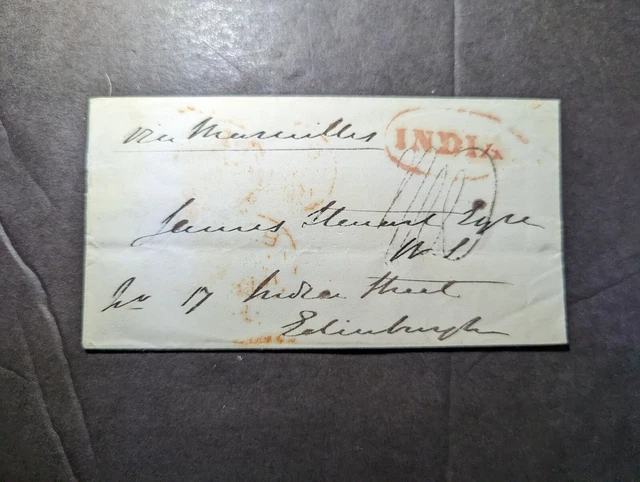 via Marseilles
INDIA
James Stewart Esqre
W.S.
No 17 India Street
Edinburgh